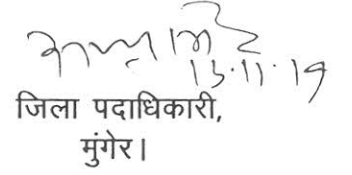 13.11.19
जिला पदाधिकारी,
मुंगेर।